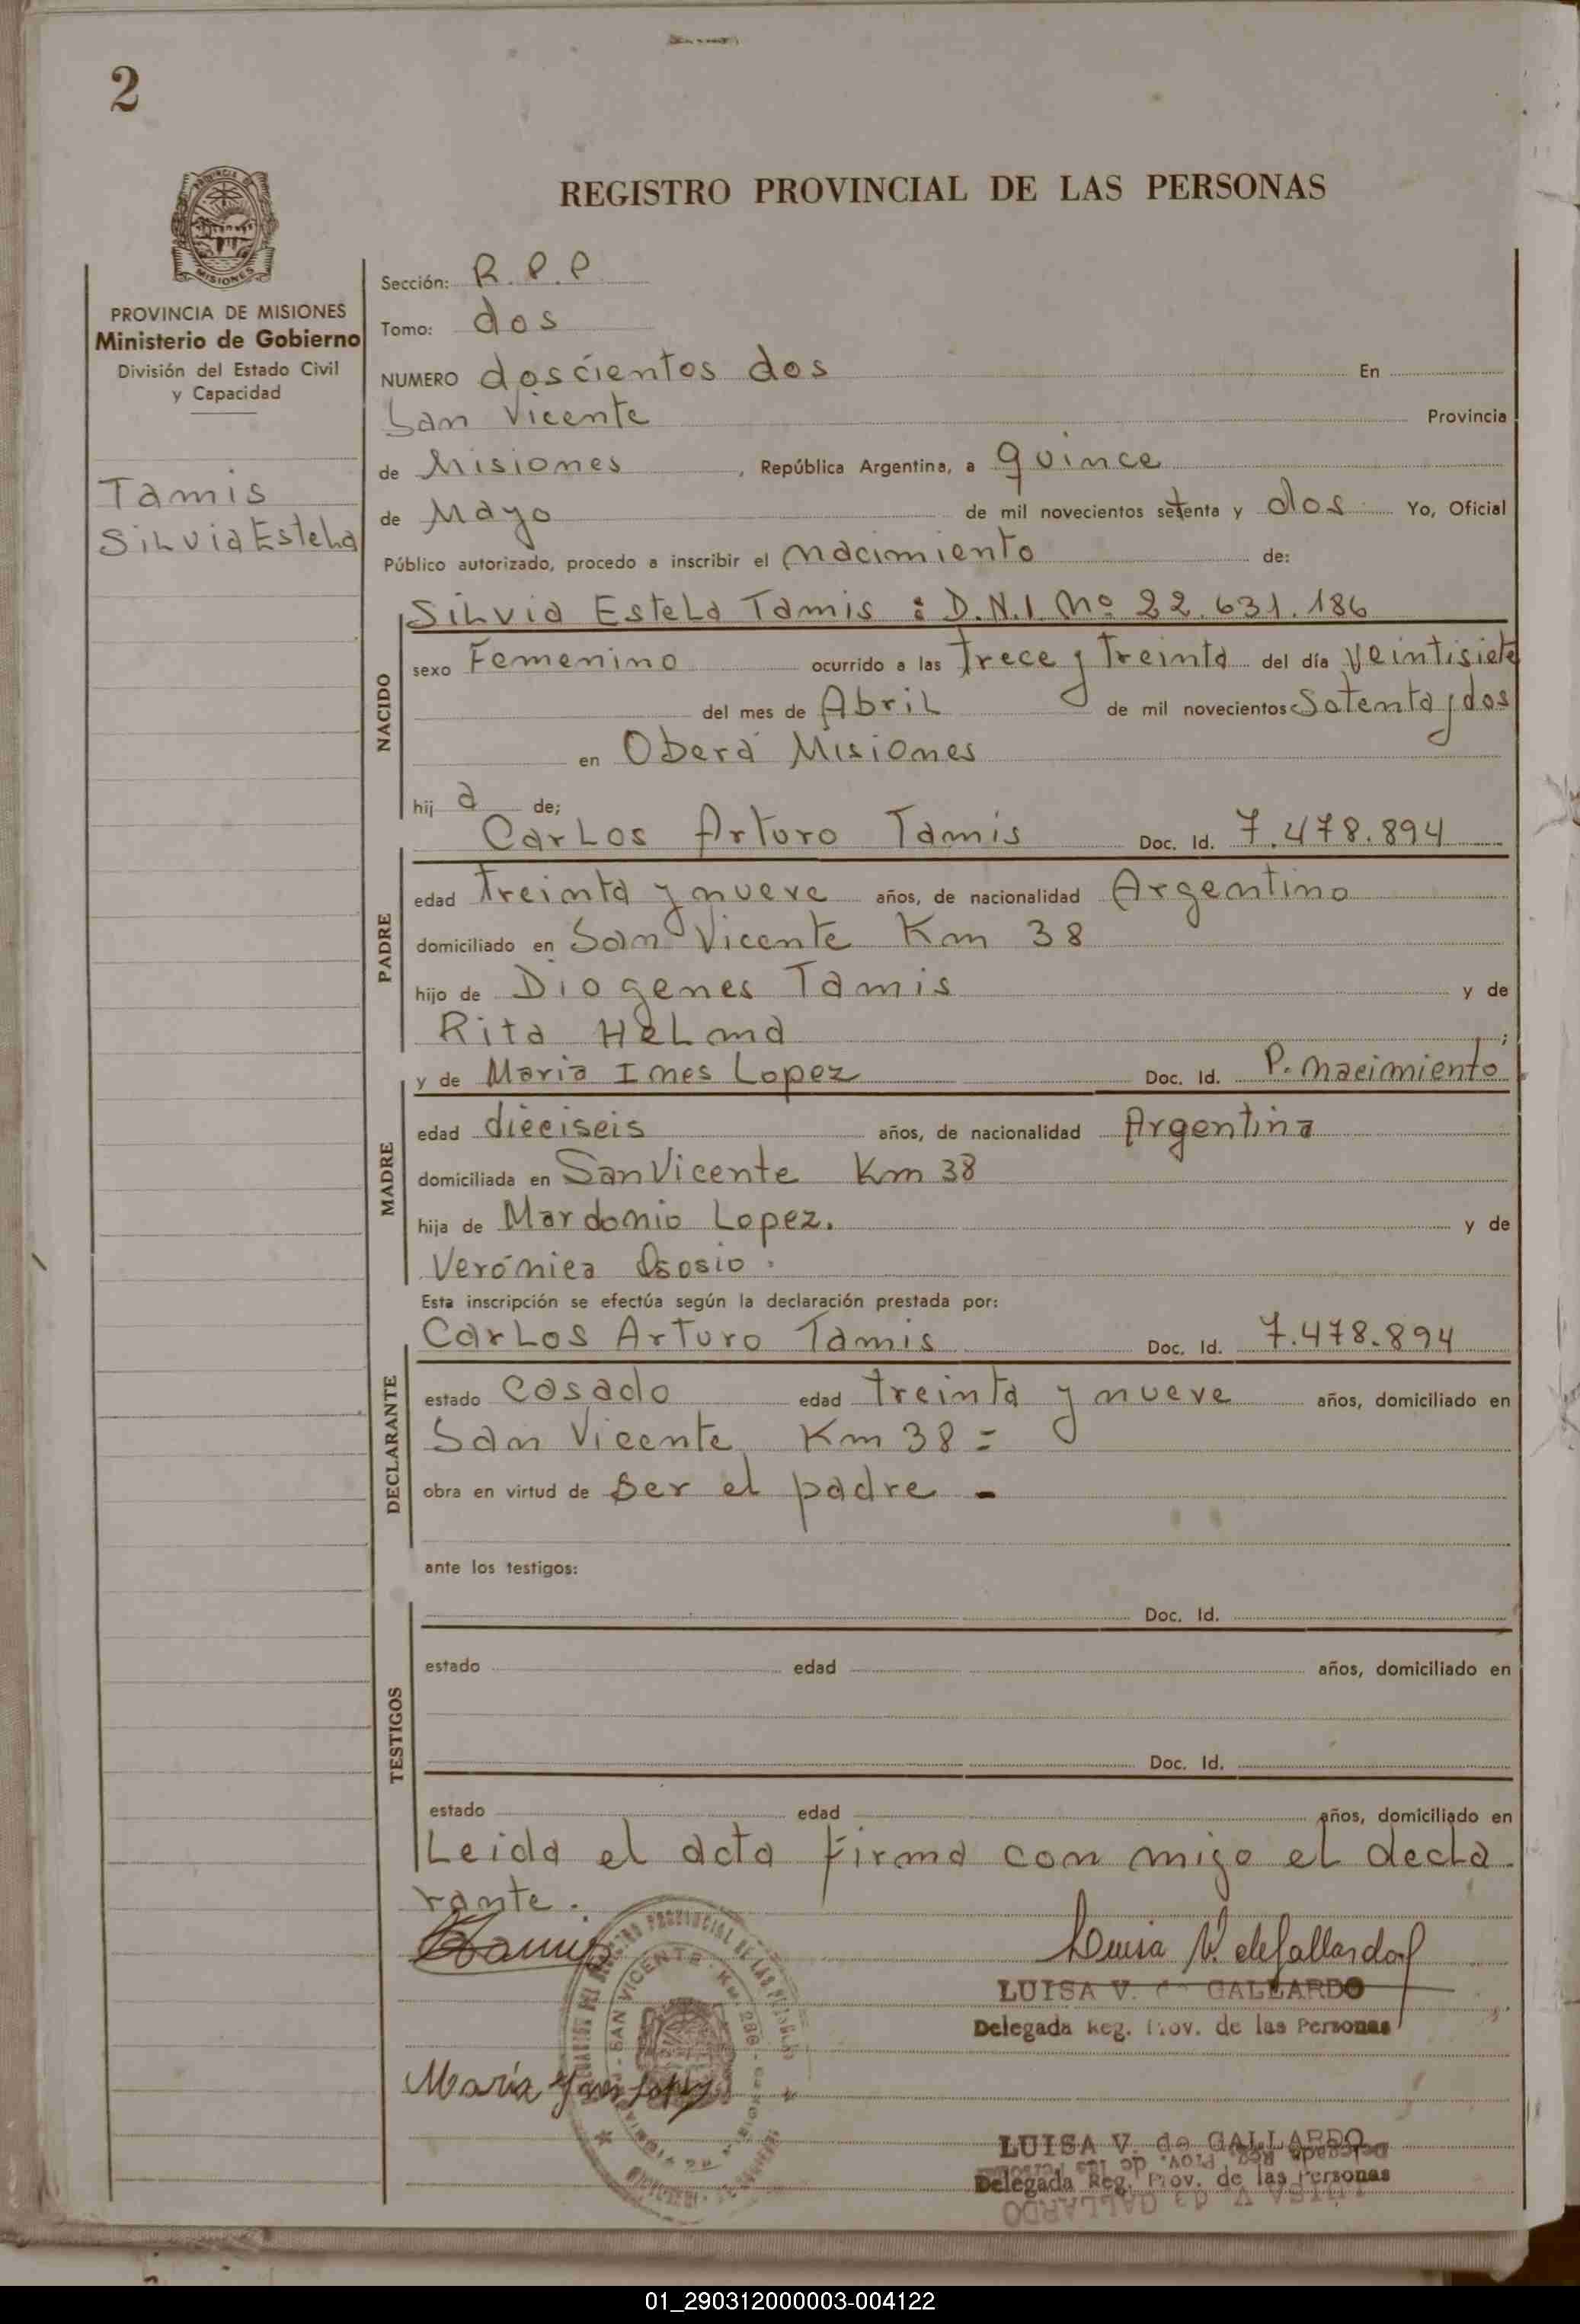 2
REGISTRO PROVINCIAL DE LAS PERSONAS
MISIONES
PROVINCIA DE MISIONES
Ministerio de Gobierno
División del Estado Civil
y Capacidad
Tamis
Silvia Estela
Sección: R.P.P
Tomo: dos
NUMERO doscientos dos En
San Vicente Provincia
de Misiones, República Argentina, a quince
de Mayo de mil novecientos setenta y dos Yo, Oficial
Público autorizado, procedo a inscribir el nacimiento de:
NACIDO
Silvia Estela Tamis : D.N.I Nº 22.631.186
sexo Femenino ocurrido a las trece y treinta del día veintisiete
del mes de Abril de mil novecientos Setenta y dos
en Oberá Misiones
hij a de;
PADRE
Carlos Arturo Tamis Doc. Id. 7.478.894
edad treinta y nueve años, de nacionalidad Argentino
domiciliado en San Vicente Km 38
hijo de Diogenes Tamis y de
Rita Helma ;
MADRE
y de Maria Ines Lopez Doc. Id. P. nacimiento
edad dieciseis años, de nacionalidad Argentina
domiciliada en San Vicente Km 38
hija de Mardonio Lopez. y de
Verónica Ososio.
Esta inscripción se efectúa según la declaración prestada por:
DECLARANTE
Carlos Arturo Tamis Doc. Id. 7.478.894
estado casado edad treinta y nueve años, domiciliado en
San Vicente Km 38 =
obra en virtud de ser el padre -
ante los testigos:
TESTIGOS
Doc. Id.
estado edad años, domiciliado en
Doc. Id.
estado edad años, domiciliado en
Leida el acta firma con migo el decla
rante.
Tamis
Luisa V. de Gallardo
LUISA V. de GALLARDO
Delegada Reg. Prov. de las Personas
SAN VICENTE
María Ines Lopez
LUISA V. de GALLARDO
Delegada Reg. Prov. de las Personas
01_290312000003-004122